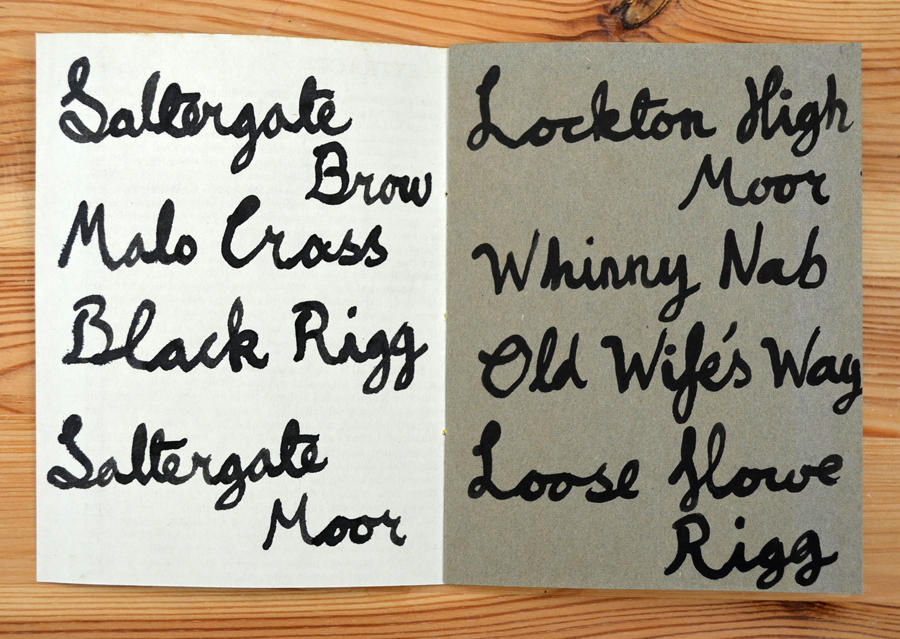 Saltergate
Brow
Malo Cross
Black Rigg
Saltergate
Moor
Lockton High
Moor
Whinny Nab
Old Wife's Way
Loose Howe
Rigg